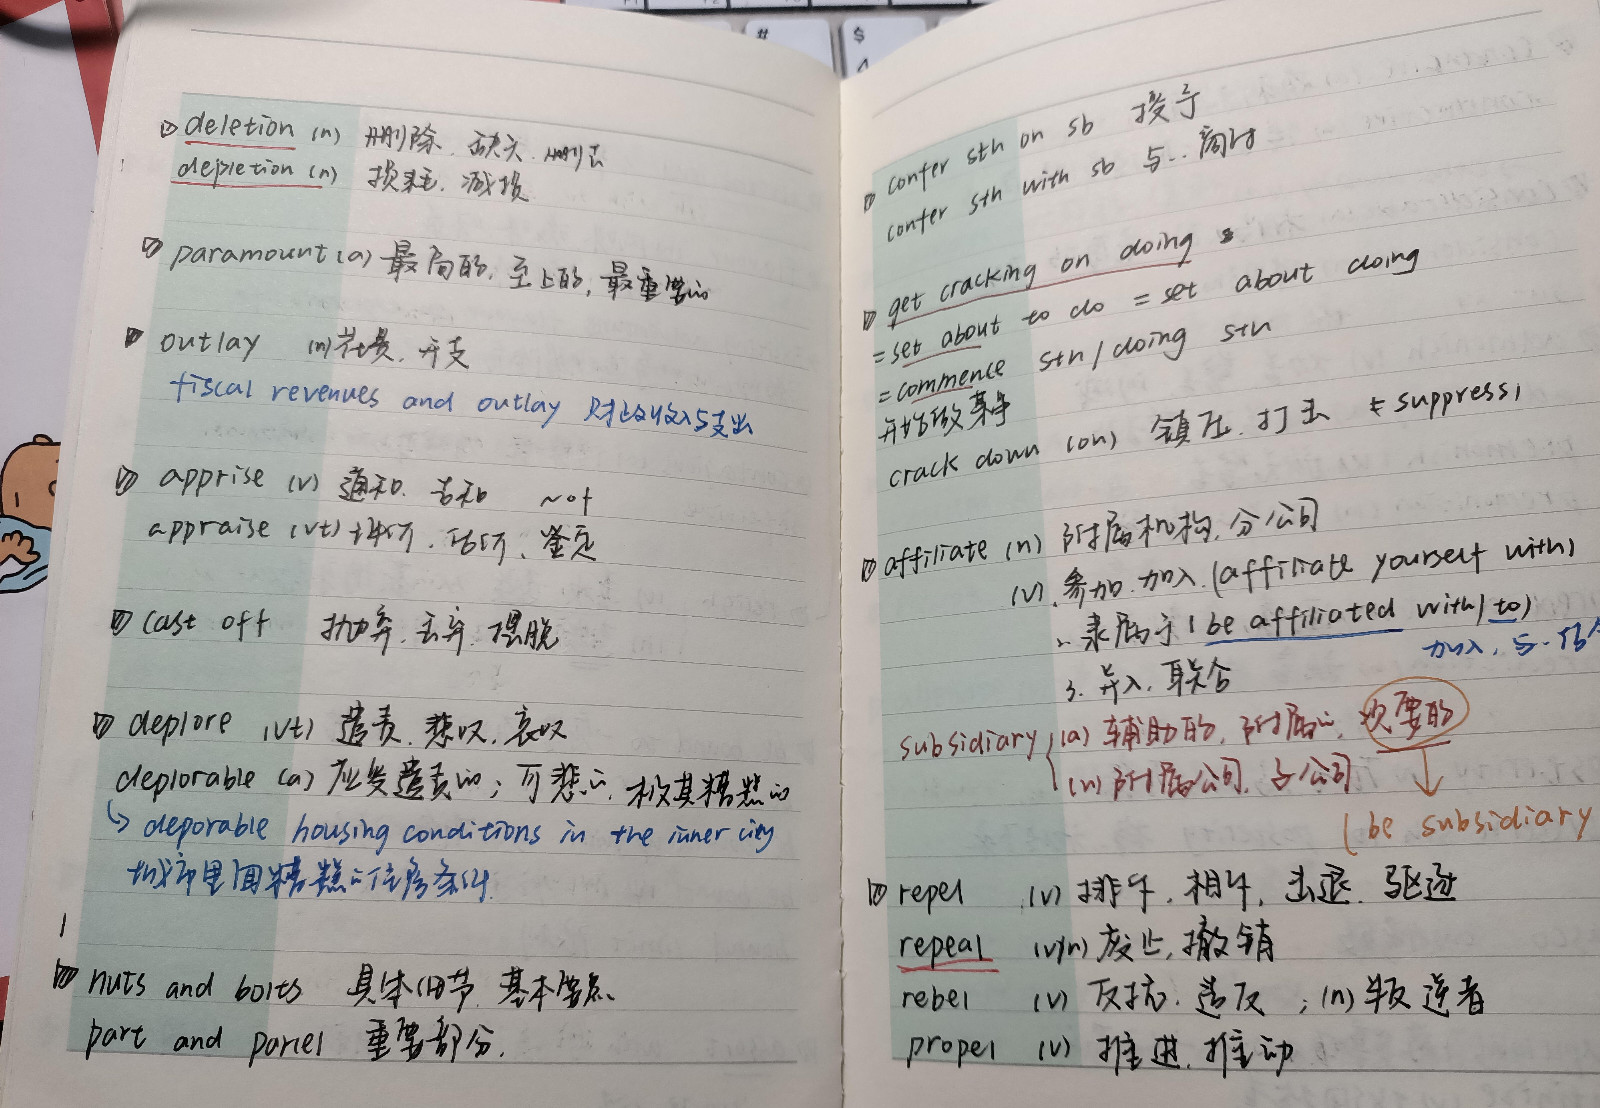 deletion (n) 删除、缺失、删去
depletion (n) 损耗、减损
paramount (a) 最高的, 至上的, 最重要的
outlay (n) 花费、开支
fiscal revenues and outlay 财政收入与支出
apprise (v) 通知、告知 ~of
appraise (vt) 评价、估价、鉴定
cast off 抛弃、丢弃、摆脱
deplore (vt) 谴责、悲叹、哀叹
deplorable (a) 应受谴责的；可悲的、极其糟糕的
↳ deporable housing conditions in the inner city
城市里面糟糕的住房条件
nuts and bolts 具体细节、基本要点
part and parcel 重要部分.
confer sth on sb 授予
confer sth with sb 与..商讨
get cracking on doing s
= set about to do = set about doing
= commence sth / doing sth
开始做某事
crack down (on) 镇压、打击 = suppress
affiliate (n) 附属机构、分公司
(v) 参加、加入 (affiliate yourself with)
隶属于 (be affiliated with/to)
加入, 与..
3. 并入、联合
subsidiary (a) 辅助的, 附属的, 次要的
(n) 附属公司、子公司
(be subsidiary
repel (v) 排斥、相斥、击退、驱逐
repeal (v/n) 废止、撤销
rebel (v) 反抗、造反；(n) 叛逆者
propel (v) 推进、推动
# $
4